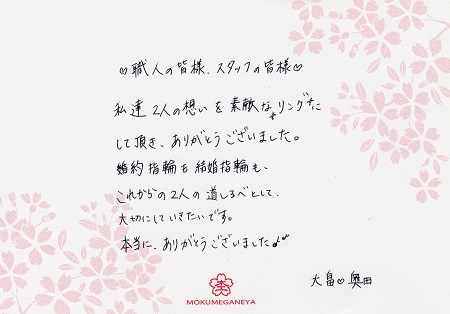 ♡職人の皆様、スタッフの皆様♡
私達2人の想いを素敵なリングに
して頂き、ありがとうございました。
婚約指輪も結婚指輪も、
これからの2人の道しるべとして、
大切にしていきたいです。
本当に、ありがとうございました♪
大畠♡奥田
MOKUMEGANEYA